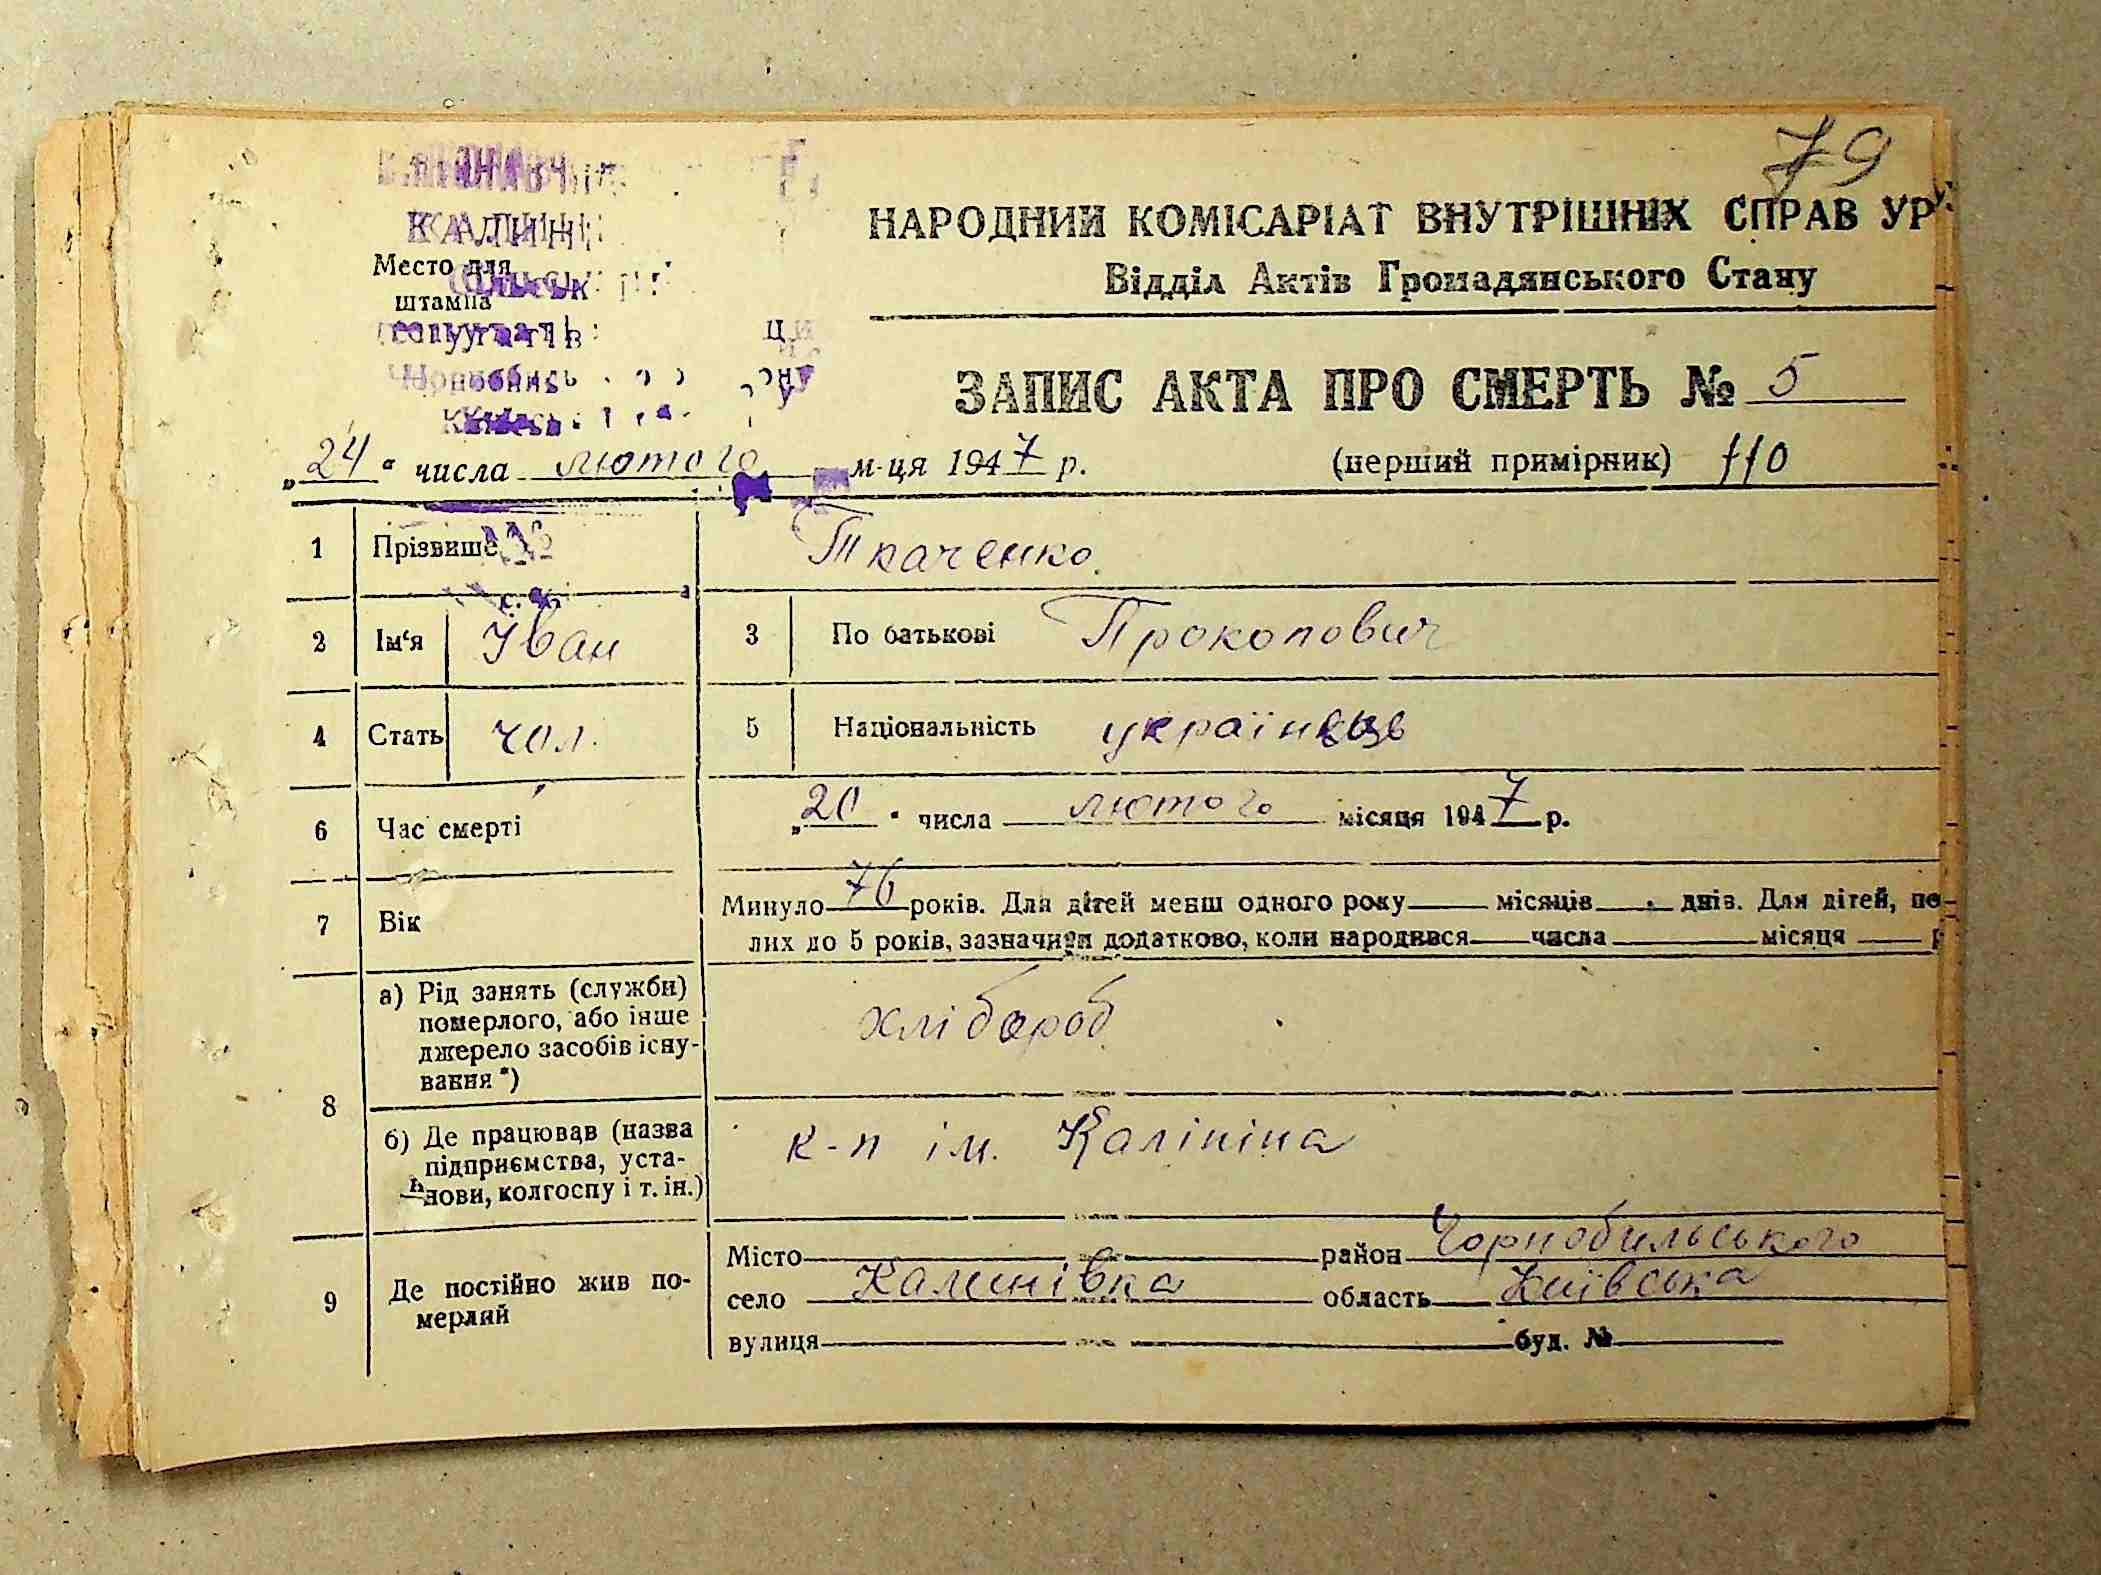 79
НАРОДНИЙ КОМІСАРІАТ ВНУТРІШНІХ СПРАВ УР
Відділ Актів Громадянського Стану
Место для
штампа
ЗАПИС АКТА ПРО СМЕРТЬ № 5
„24“ числа лютого м-ця 1947 р. (перший примірник) 110
1 Прізвище Ткаченко
2 Ім'я Іван 3 По батькові Прокопович
4 Стать чол. 5 Національність українець
6 Час смерті „20“ числа лютого місяця 1947 р.
7 Вік Минуло 76 років. Для дітей менш одного року місяців днів. Для дітей, по-
лих до 5 років, зазначити додатково, коли народився числа місяця р
8 а) Рід занять (служби)
померлого, або інше
джерело засобів існу-
вання *)
хлібороб
б) Де працював (назва
підприємства, уста-
нови, колгоспу і т. ін.)
к-п ім. Калініна
9 Де постійно жив по-
мерлий
Місто район Чорнобильського
село Калинівка область Київська
вулиця буд. №